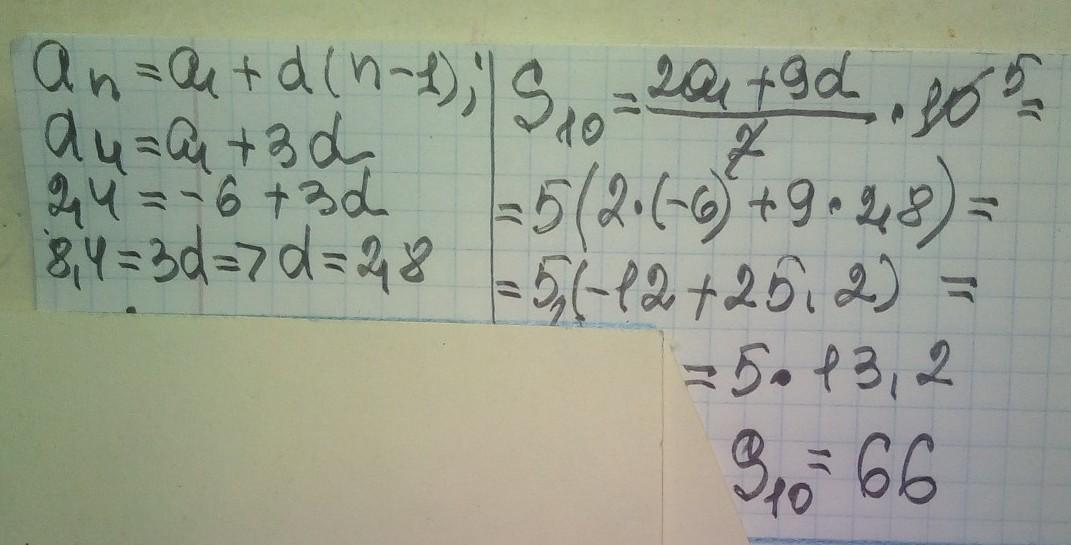 aₙ = a₁ + d(n-1);
a₄ = a₁ + 3d
2,4 = -6 + 3d
8,4 = 3d => d = 2,8
S₁₀ = (2a₁ + 9d)/2 · 10 5 =
= 5(2·(-6) + 9·2,8) =
= 5,(-12 + 25,2) =
= 5·13,2
S₁₀ = 66